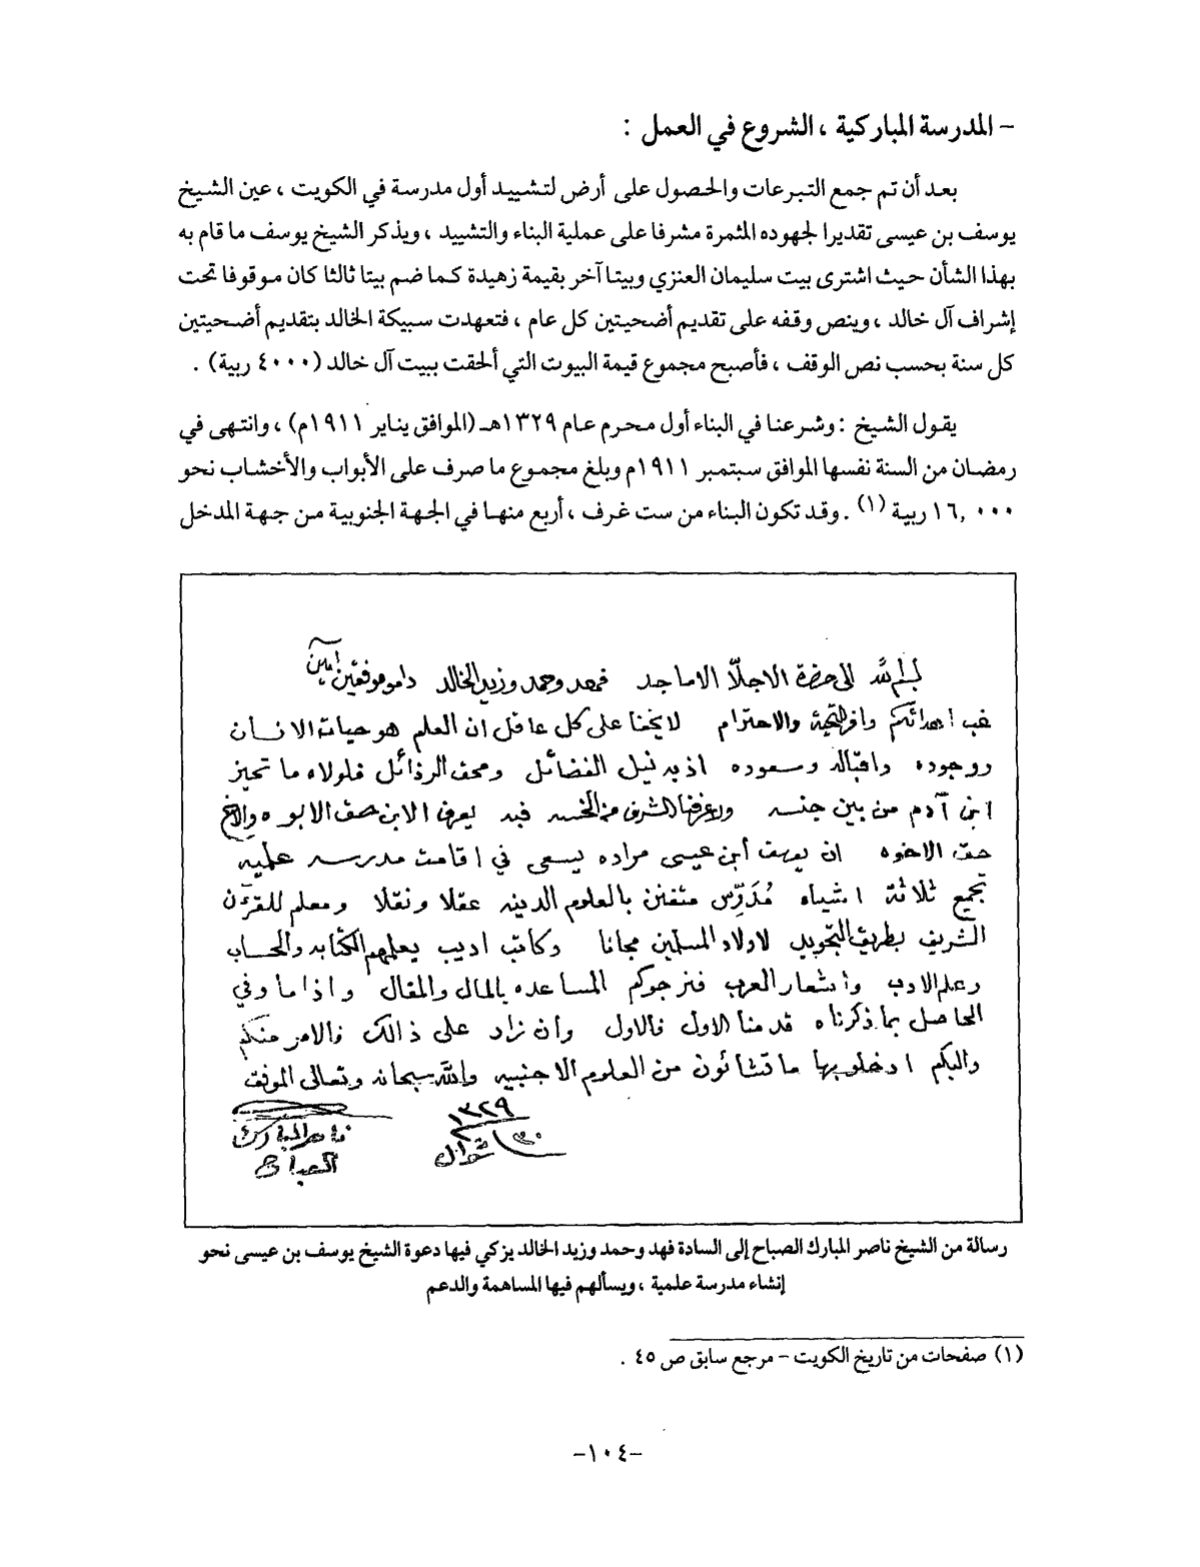 – المدرسة المباركية ، الشروع في العمل :
بعد أن تم جمع التبرعات والحصول على أرض لتشييد أول مدرسة في الكويت ، عين الشيخ
يوسف بن عيسى تقديرا لجهوده المثمرة مشرفا على عملية البناء والتشييد ، ويذكر الشيخ يوسف ما قام به
بهذا الشأن حيث اشترى بيت سليمان العنزي وبيتا آخر بقيمة زهيدة كما ضم بيتا ثالثا كان موقوفا تحت
إشراف آل خالد ، وينص وقفه على تقديم أضحيتين كل عام ، فتعهدت سبيكة الخالد بتقديم أضحيتين
كل سنة بحسب نص الوقف ، فأصبح مجموع قيمة البيوت التي ألحقت ببيت آل خالد (٤٠٠٠ ربية) .
يقول الشيخ : وشرعنا في البناء أول محرم عام ١٣٢٩هـ (الموافق يناير ١٩١١م) ، وانتهى في
رمضان من السنة نفسها الموافق سبتمبر ١٩١١م وبلغ مجموع ما صرف على الأبواب والأخشاب نحو
١٦,٠٠٠ ربية (١) . وقد تكون البناء من ست غرف ، أربع منها في الجهة الجنوبية من جهة المدخل
الى حضرة الاجلّا الاماجد فهد وحمد وزيد الخالد دامو موفقين امين
غب اهدائكم وافر التحية والاحترام لا يخفا على كل عاقل ان العلم هو حيات الانسان
ووجوده واقباله وسعوده اذ به نيل الفضائل ومحق الرذائل فلولاه ما تميز
ابن آدم من بين جنسه الشرف من الخسه فبه يعرف الابن حق الابوه والاخ
حق الاخوه ان يوسف ابن عيسى مراده يسعى في اقامت مدرسه علميه
تجمع ثلاثة اشياء مُدَرِّس متفنن بالعلوم الدينه عقلا ونقلا ومعلم للقرآن
الشريف بطريق التجويد لاولاد المسلمين مجانا وكاتب اديب يعلمهم الكتابه والحساب
وعلم الادب واشعار العرب فنرجوكم المساعده بالمال والمقال واذا ما وفي
الحاصل بما ذكرناه قدمنا الاول فالاول وأن زاد على ذالك فالامر منكم
واليكم ادخلو بها ما تشائون من العلوم الاجنبيه والله سبحانه وتعالى الموفق
١٣٢٩
٣٠ شوال
ناصر المبارك
الصباح
رسالة من الشيخ ناصر المبارك الصباح إلى السادة فهد وحمد وزيد الخالد يزكي فيها دعوة الشيخ يوسف بن عيسى نحو
إنشاء مدرسة علمية ، ويسألهم فيها المساهمة والدعم
(١) صفحات من تاريخ الكويت – مرجع سابق ص ٤٥ .
–١٠٤–